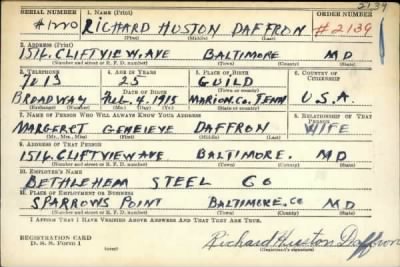 2139
SERIAL NUMBER 1. NAME (Print) ORDER NUMBER
#1220 RICHARD HUSTON DAFFRON #2139
(First) (Middle) (Last)
2. ADDRESS (Print)
1514 CLIFTVIEW AVE BALTIMORE MD
(Number and street or R. F. D. number) (Town) (County) (State)
3. TELEPHONE 4. AGE IN YEARS 5. PLACE OF BIRTH 6. COUNTRY OF CITIZENSHIP
25 GUILD
DATE OF BIRTH
BROADWAY 4 1915 MARION.CO TENN U.S.A.
(Exchange) (Number) (Mo.) (Day) (Yr.) (Town) (County) (State or country)
7. NAME OF PERSON WHO WILL ALWAYS KNOW YOUR ADDRESS 8. RELATIONSHIP OF THAT PERSON
MARGERET GENEIEVE DAFFRON WIFE
(Mr., Mrs., Miss) (First) (Middle) (Last)
9. ADDRESS OF THAT PERSON
1514 CLIFTVIEW AVE BALTIMORE. MD
(Number and street or R. F. D. number) (Town) (County) (State)
10. EMPLOYER'S NAME
BETHLEHEM STEEL CO
11. PLACE OF EMPLOYMENT OR BUSINESS
SPARROWS POINT BALTIMORE.CO MD
(Number and street or R. F. D. number) (Town) (County) (State)
I AFFIRM THAT I HAVE VERIFIED ABOVE ANSWERS AND THAT THEY ARE TRUE.
REGISTRATION CARD
D. S. S. FORM 1
Richard Huston Daffron
(Registrant's signature)